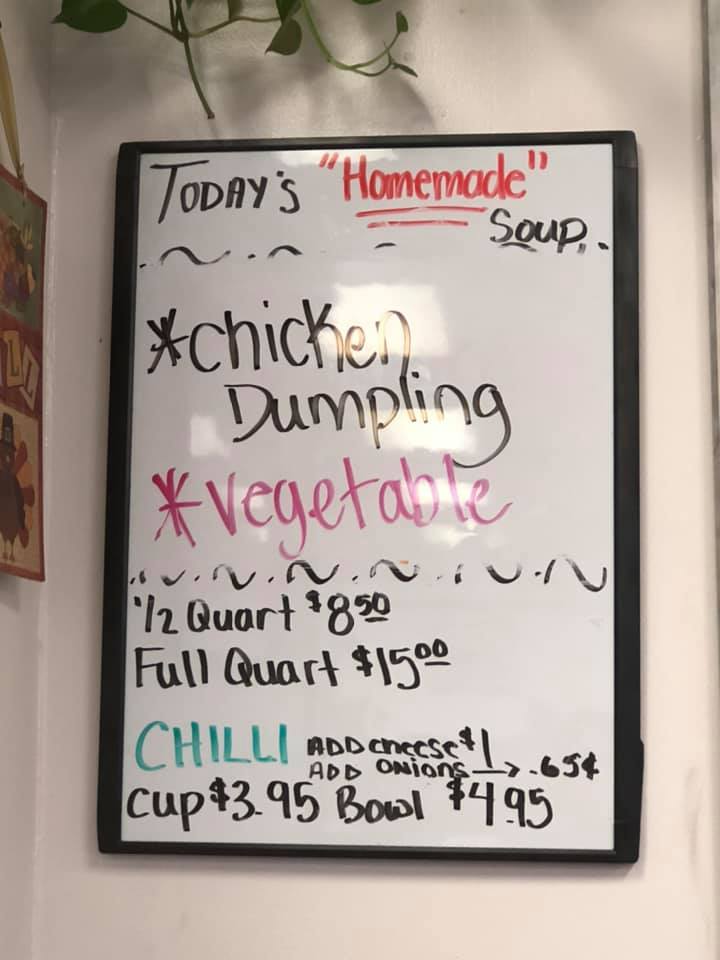 TODAY'S "Homemade"
Soup..
*chicken
Dumpling
*vegetable
1/2 Quart $8.50
Full Quart $15.00
CHILLI ADD cheese $1
ADD ONIONS → .65¢
cup $3.95 Bowl $4.95